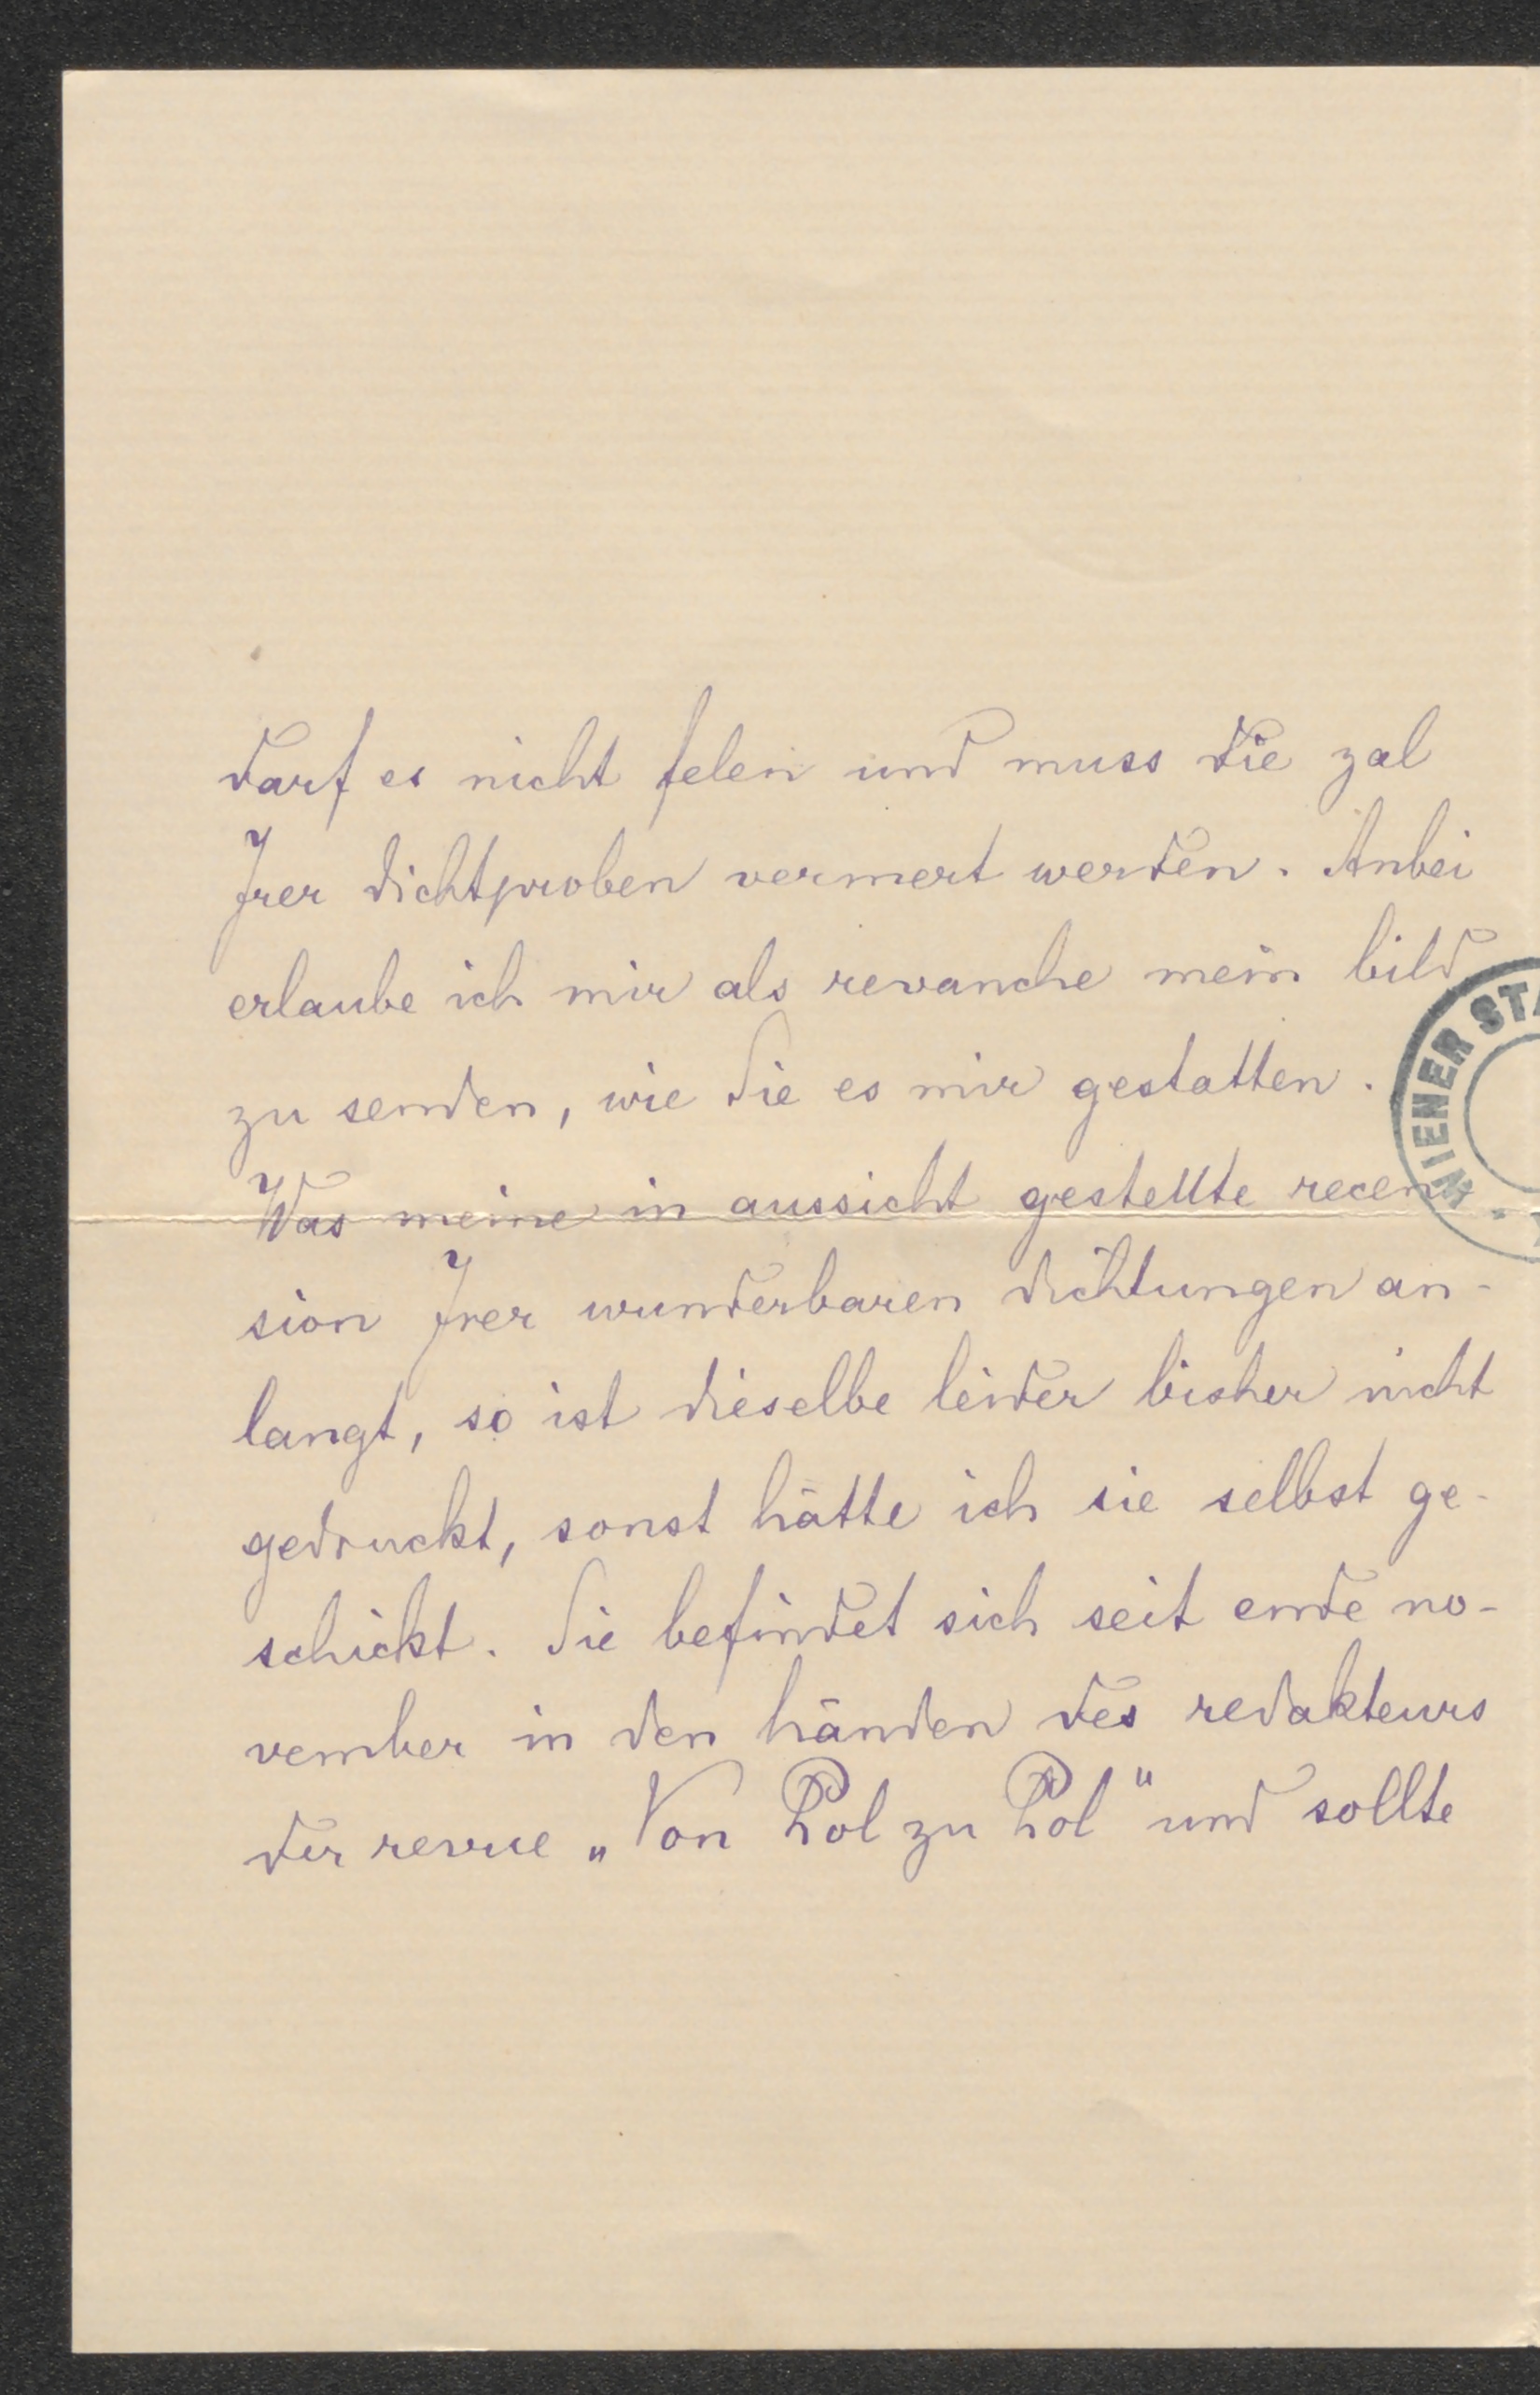 darf es nicht felen und muss die zal
Irer dichtproben vermert werden. Anbei
erlaube ich mir als revanche mein bild
zu senden, wie Sie es mir gestatten.
Was meine in aussicht gestellte recen-
sion Irer wunderbaren dichtungen an-
langt, so ist dieselbe leider bisher nicht
gedruckt, sonst hätte ich sie selbst ge-
schickt. Sie befindet sich seit ende no-
vember in den händen des redakteurs
der revue „Von Pol zu Pol" und sollte
WIENER STA